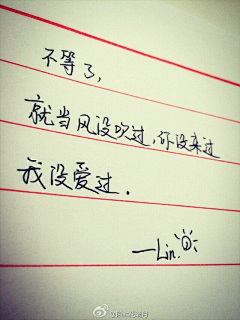 不等了，
就当风没吹过，你没来过
我没爱过．
—Lin.